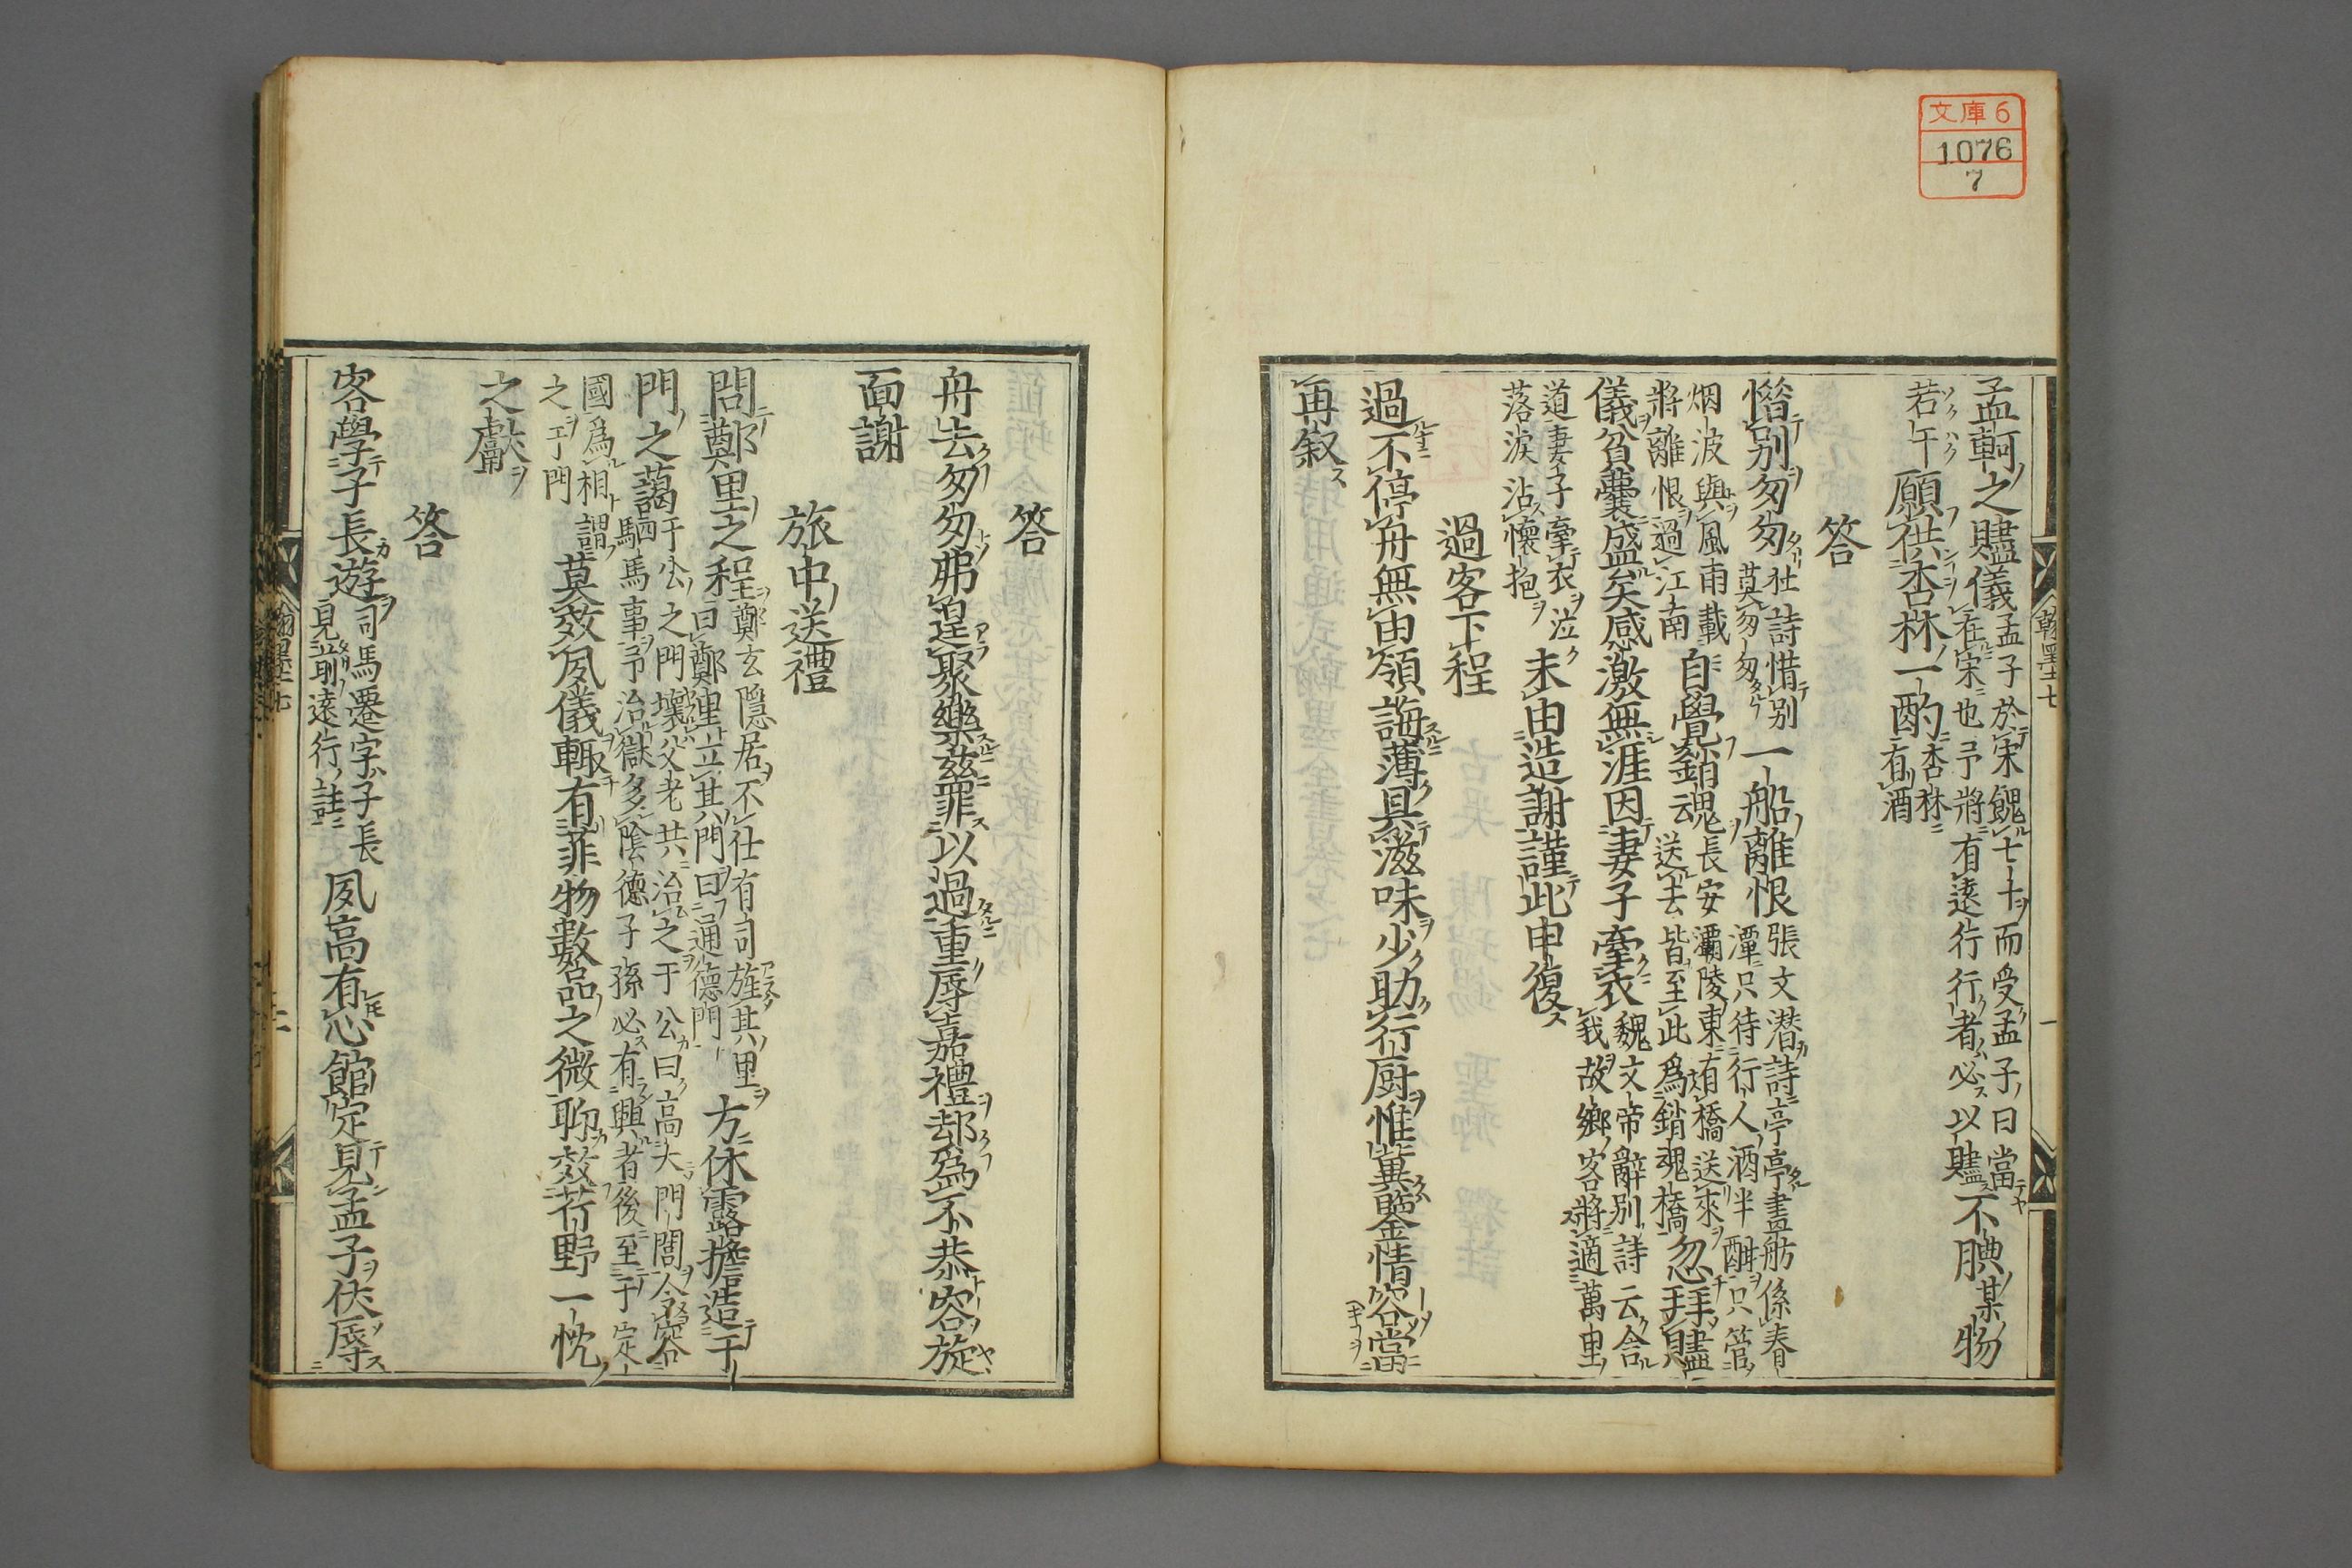 文庫6
1076
7
孟軻之贐儀孟子於宋餽七十而受孟子曰當在宋也予將有遠行行者必以贐不腆某物
若干願供杏林一酌杏林有酒
答
惜别匆匆杜詩惜别莫匆匆一船離恨張文潜詩亭亭畫舫係春潭只待行人酒半酣只管
烟波與風雨載將離恨過江南自覺銷魂長安灞陵東有橋送來送去皆至此爲銷魂橋忽拜贐
儀貧囊盛矣感激無涯因妻子牽衣魏文帝辭别詩云舍我故鄉客將適萬里
道妻子牽衣泣落淚沾懷抱未由造謝謹此申復
過客下程
過不停舟無由領誨薄具滋味少助行厨惟冀鑒情容當
再叙
翰墨七
一
答
舟去匆匆弗遑聚樂兹罪以過重辱嘉禮却爲不恭容旋
面謝
旅中送禮
問鄭里之程鄭玄隱居不仕有司旌其里曰鄭里立其門曰通德門方休露擔造于
門之藹于公之門壞父老共治之于公曰高大門閭令容駟馬事予治獄多陰德子孫必有興者後至于定
國爲相謂之于門莫效夙儀輙有菲物數品之微聊效芹野一忱
之獻
答
客學子長遊司馬遷字子長見前遠行註夙高有心館定見孟子伏辱
翰墨七